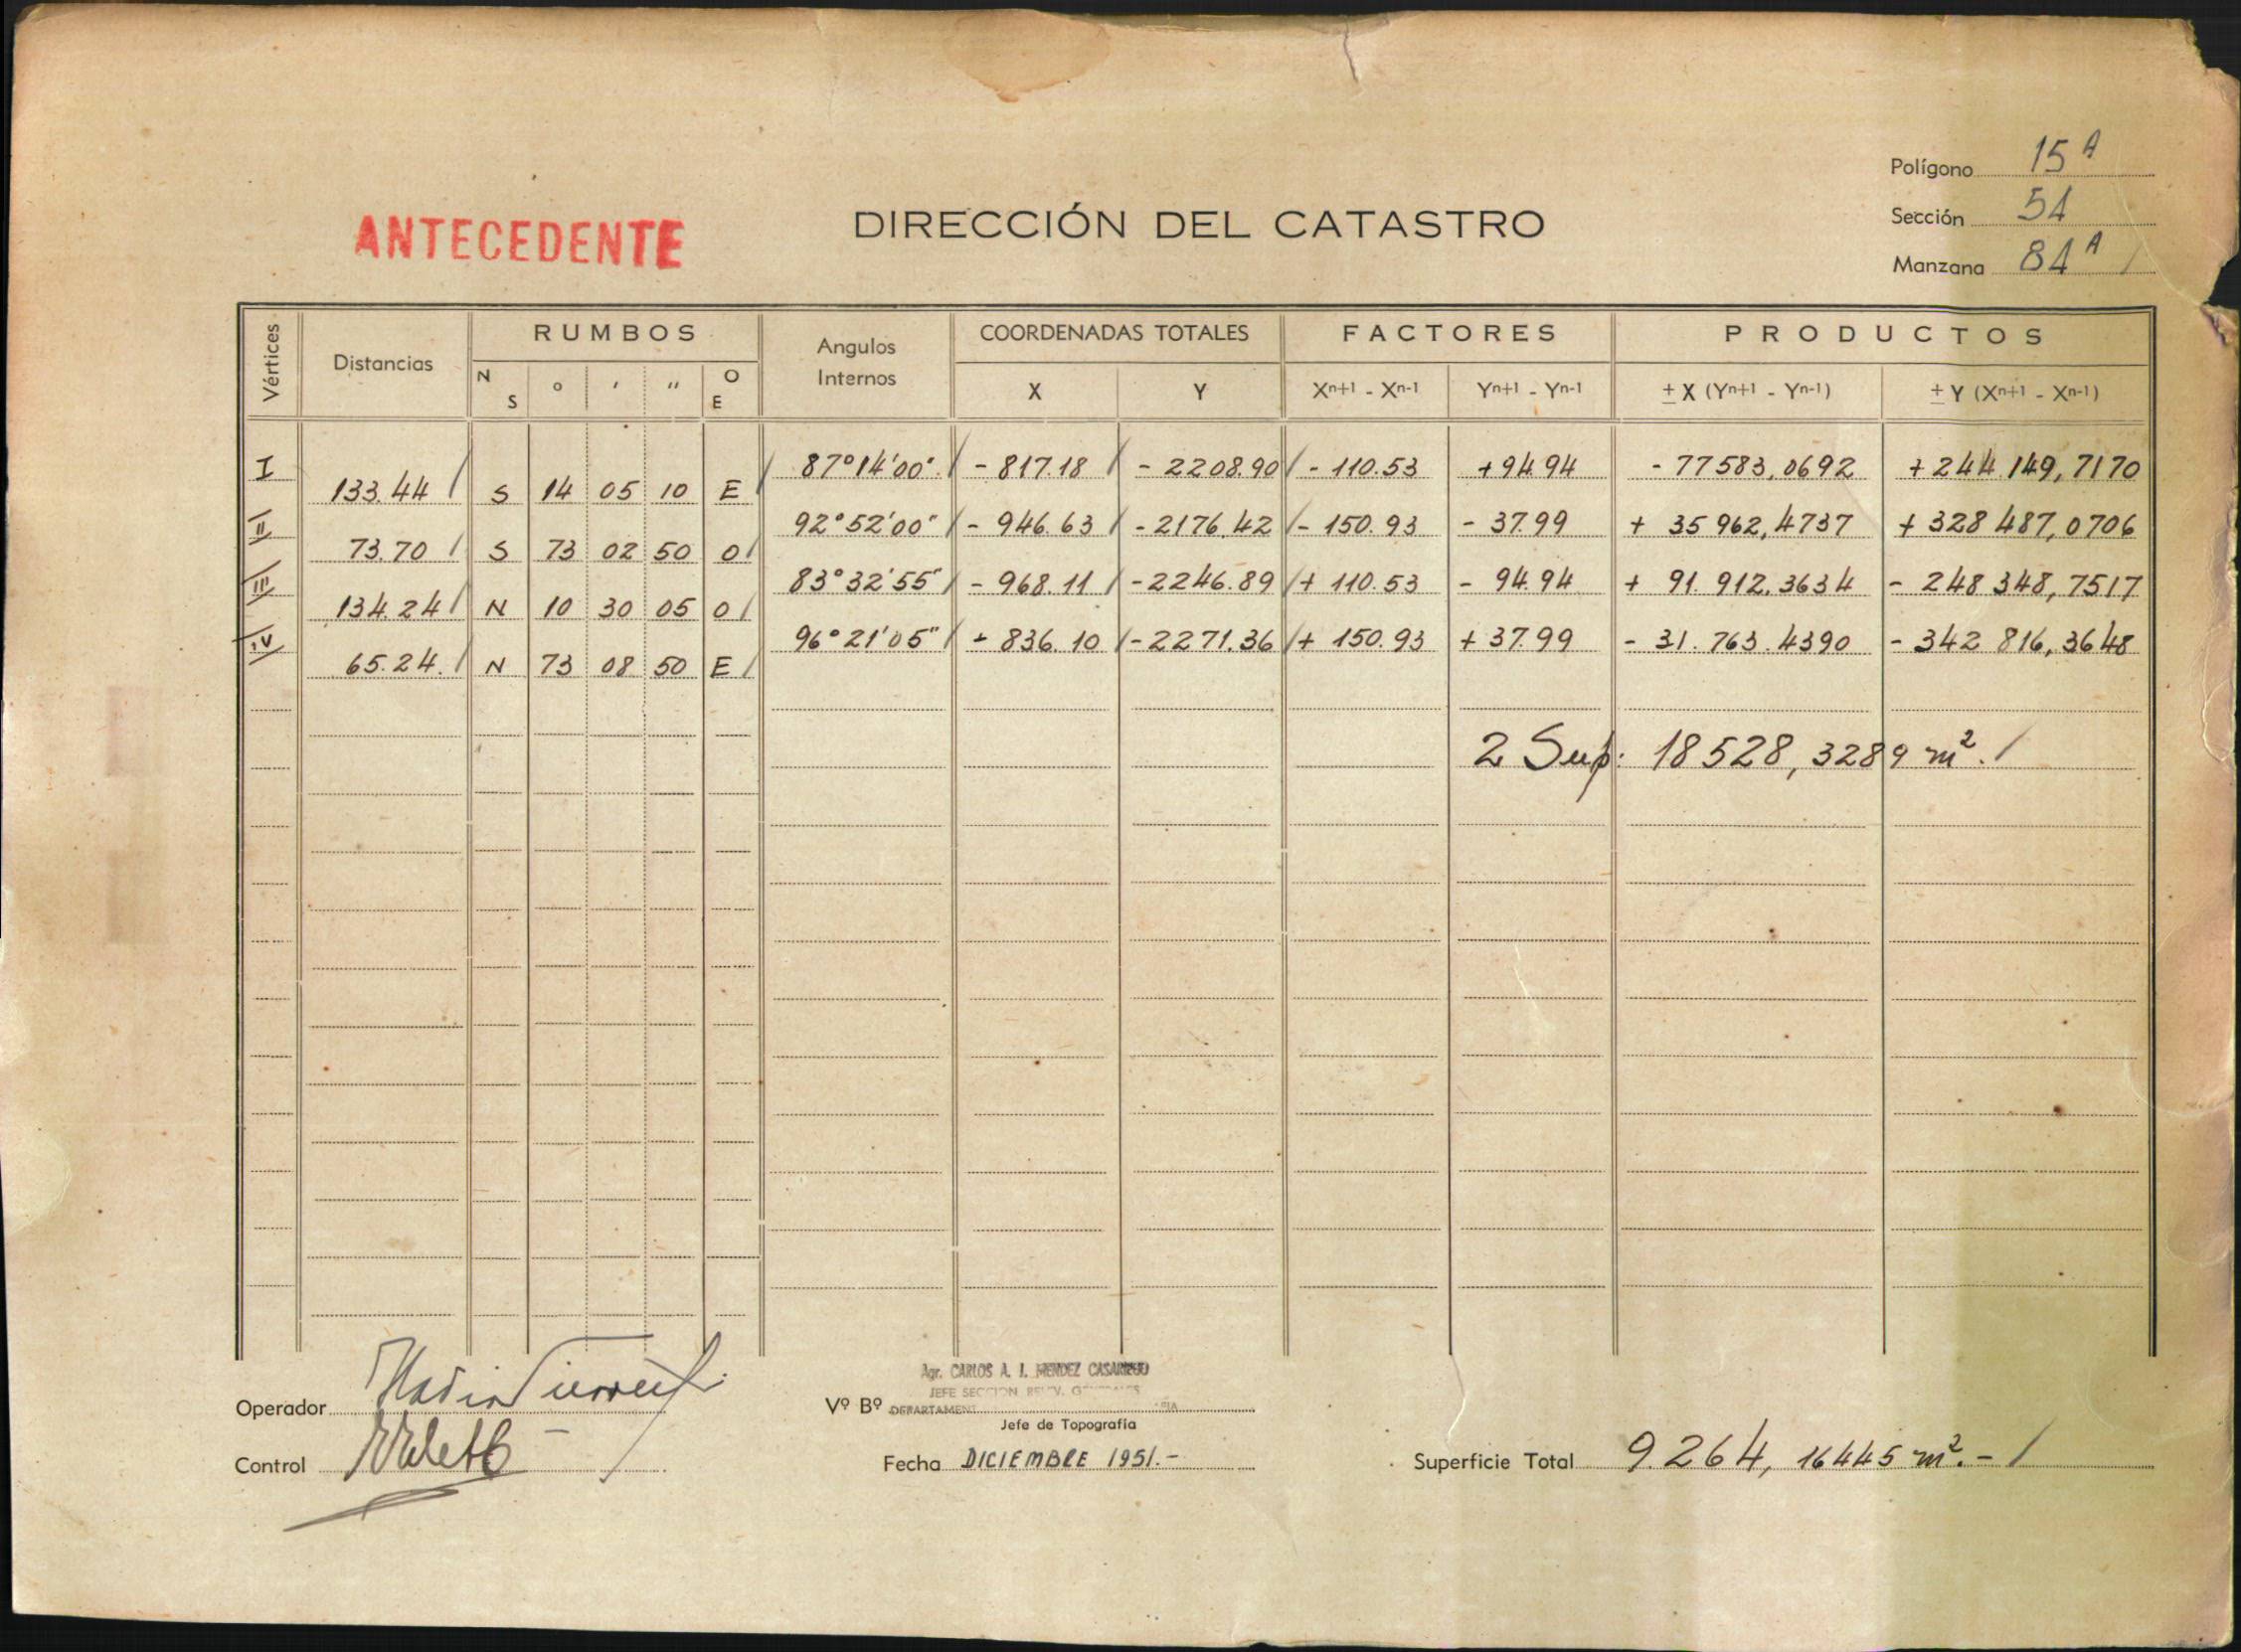 Polígono 15 A
ANTECEDENTE
DIRECCIÓN DEL CATASTRO
Sección 54
Manzana 84 A /
Vértices Distancias RUMBOS Angulos Internos COORDENADAS TOTALES FACTORES PRODUCTOS
N S ° ' " O E X Y Xn+1 - Xn-1 Yn+1 - Yn-1 ± X (Yn+1 - Yn-1) ± Y (Xn+1 - Xn-1)
I 87°14'00" / - 817.18 / - 2208.90 / - 110.53 +94.94 - 77583,0692 + 244.149,7170
133.44 / S 14 05 10 E /
II 92°52'00" / - 946.63 / - 2176.42 / - 150.93 - 37.99 + 35 962,4737 + 328 487,0706
73.70 / S 73 02 50 O /
III 83°32'55" / - 968.11 / - 2246.89 / + 110.53 - 94.94 + 91.912.3634 - 248 348,7517
134.24 / N 10 30 05 O /
IV 96°21'05" / - 836.10 / - 2271.36 / + 150.93 + 37.99 - 31.763.4390 - 342 816,3648
65.24. / N 73 08 50 E /
2 Sup: 18528,3289 m². /
Agr. CARLOS A. J. MENDEZ CASARIEGO
JEFE SECCION RELEV. GENERALES
Operador Vº Bº DEPARTAMEN
Jefe de Topografía
Control Fecha DICIEMBRE 1951.- Superficie Total 9.264, 16445 m².- /